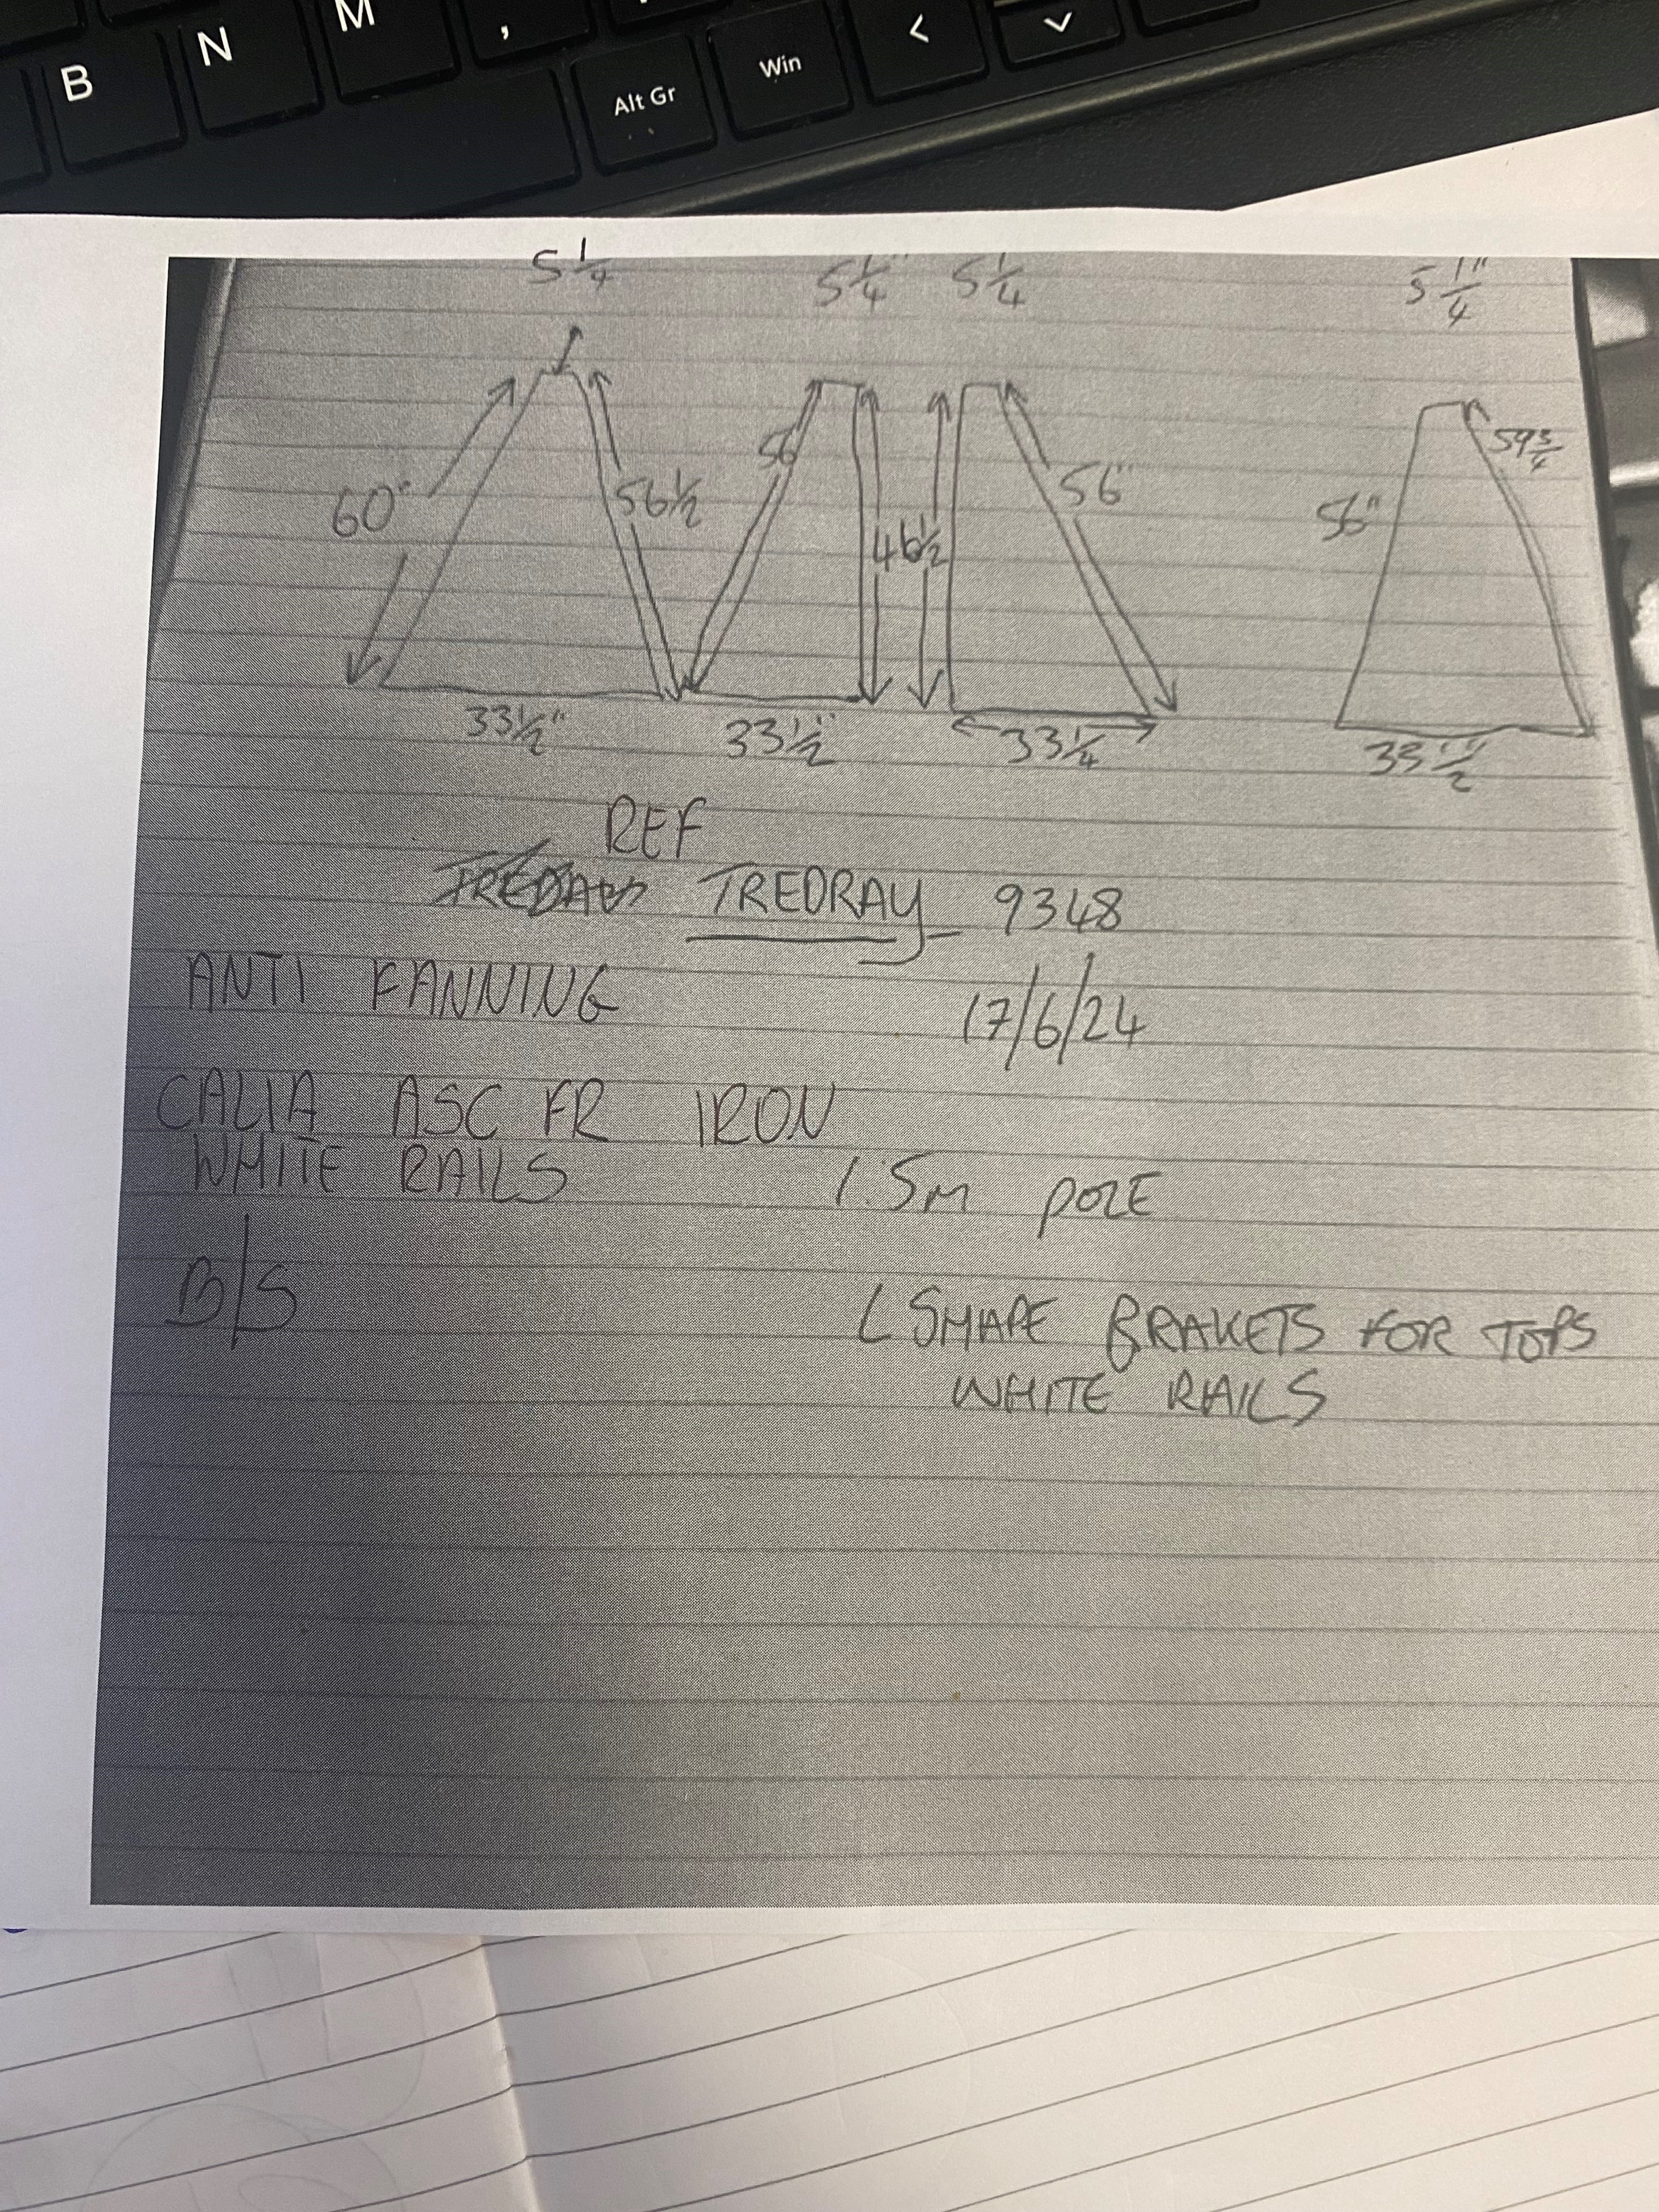 B N M ,
Alt Gr Win < 
5 1/4 5 1/4" 5 1/4 5 1/4"
60" 56 1/2 56 46 1/2 56" 56" 59 3/4
33 1/2" 33 1/2" 33 1/4 33 1/2"
REF
TREDRAY 9348
ANTI FANNING
17/6/24
CALIA ASC FR IRON
WHITE RAILS
1.5M POLE
B/S
L SHAPE BRAKETS FOR TOPS
WHITE RAILS